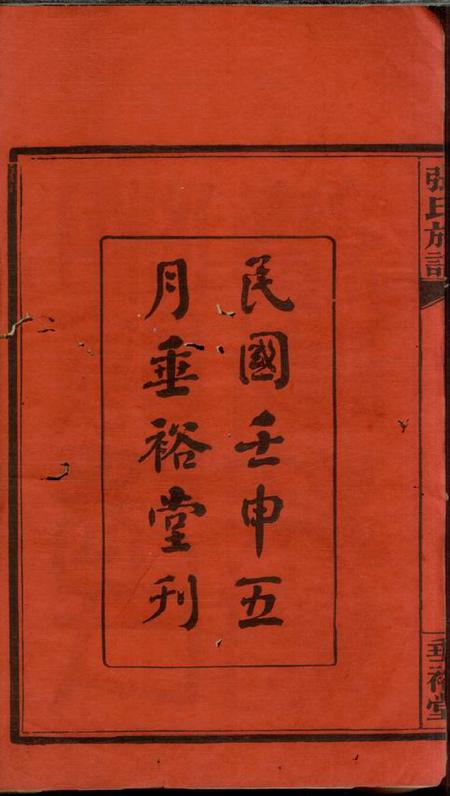 張氏族譜
民國壬申五
月垂裕堂刊
垂裕堂